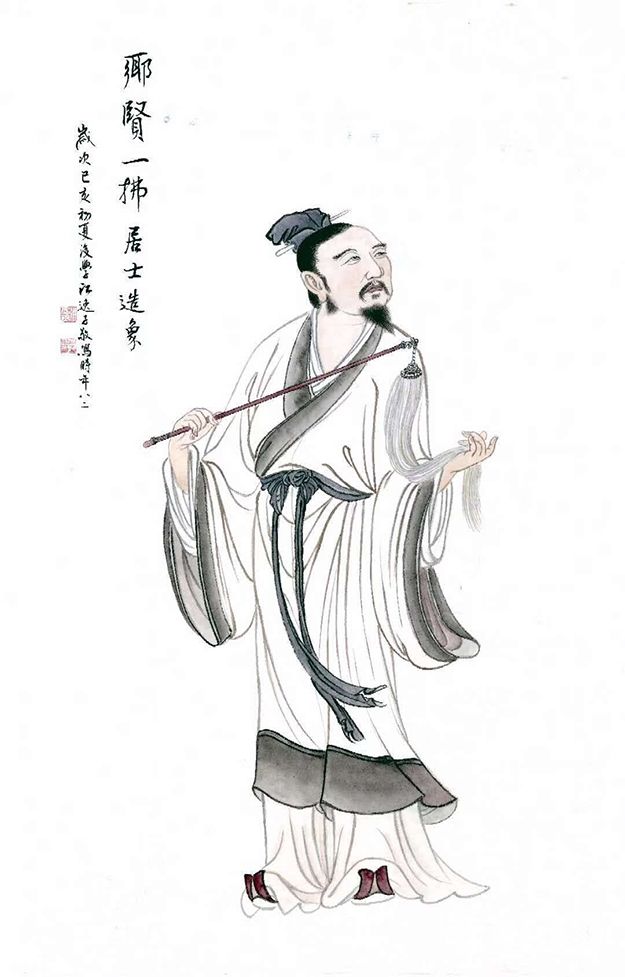 鄉賢一拂居士造象
歲次己亥初夏後學江逸子敬寫時年八二